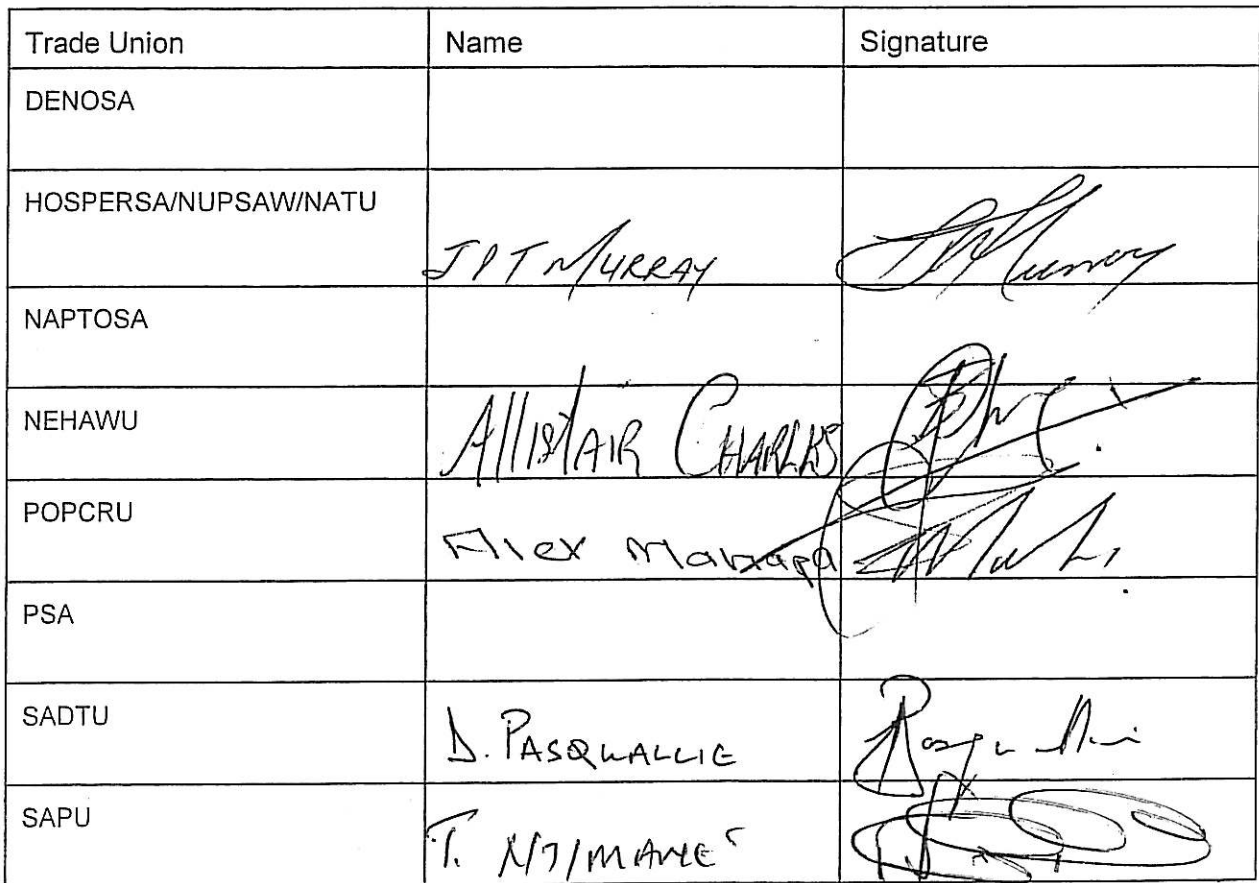 Trade Union Name Signature
DENOSA
HOSPERSA/NUPSAW/NATU
JPT MURRAY
NAPTOSA
NEHAWU
Allistair CHARLES
POPCRU
Alex
PSA
SADTU
D. PASQUALLIE
SAPU
T.